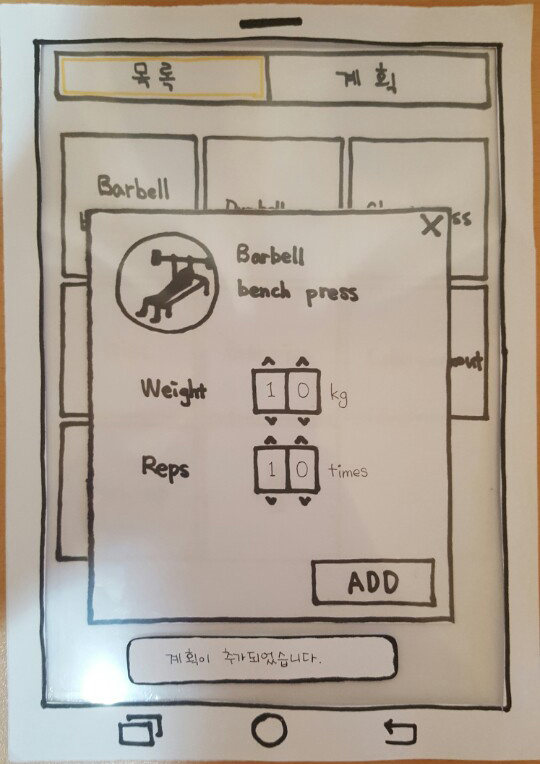 목록
계획
Barbell
X
Barbell
bench press
Weight
10 kg
Reps
10 times
ADD
계획이 추가되었습니다.